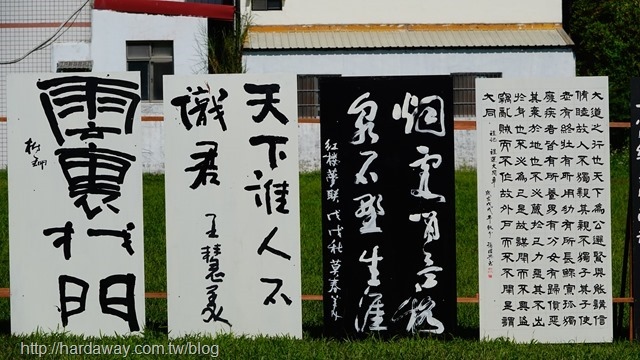 大道之行也天下為公選賢與能講信
修睦故人不獨親其親不獨子其子使
老有所終壯有所用幼有所長鰥寡孤獨
廢疾者皆有所養男有分女有歸貨惡
其棄於地也不必藏於己力惡其不出
於身也不必為己是故謀閉而不興盜
竊亂賊而不作故外戶而不閉是謂
大同
烟霞閒骨格
泉石野生涯
紅樓夢聯 戊戌秋
天下誰人不
識君
王慧美
雲裏找門
http://hardaway.com.tw/blog